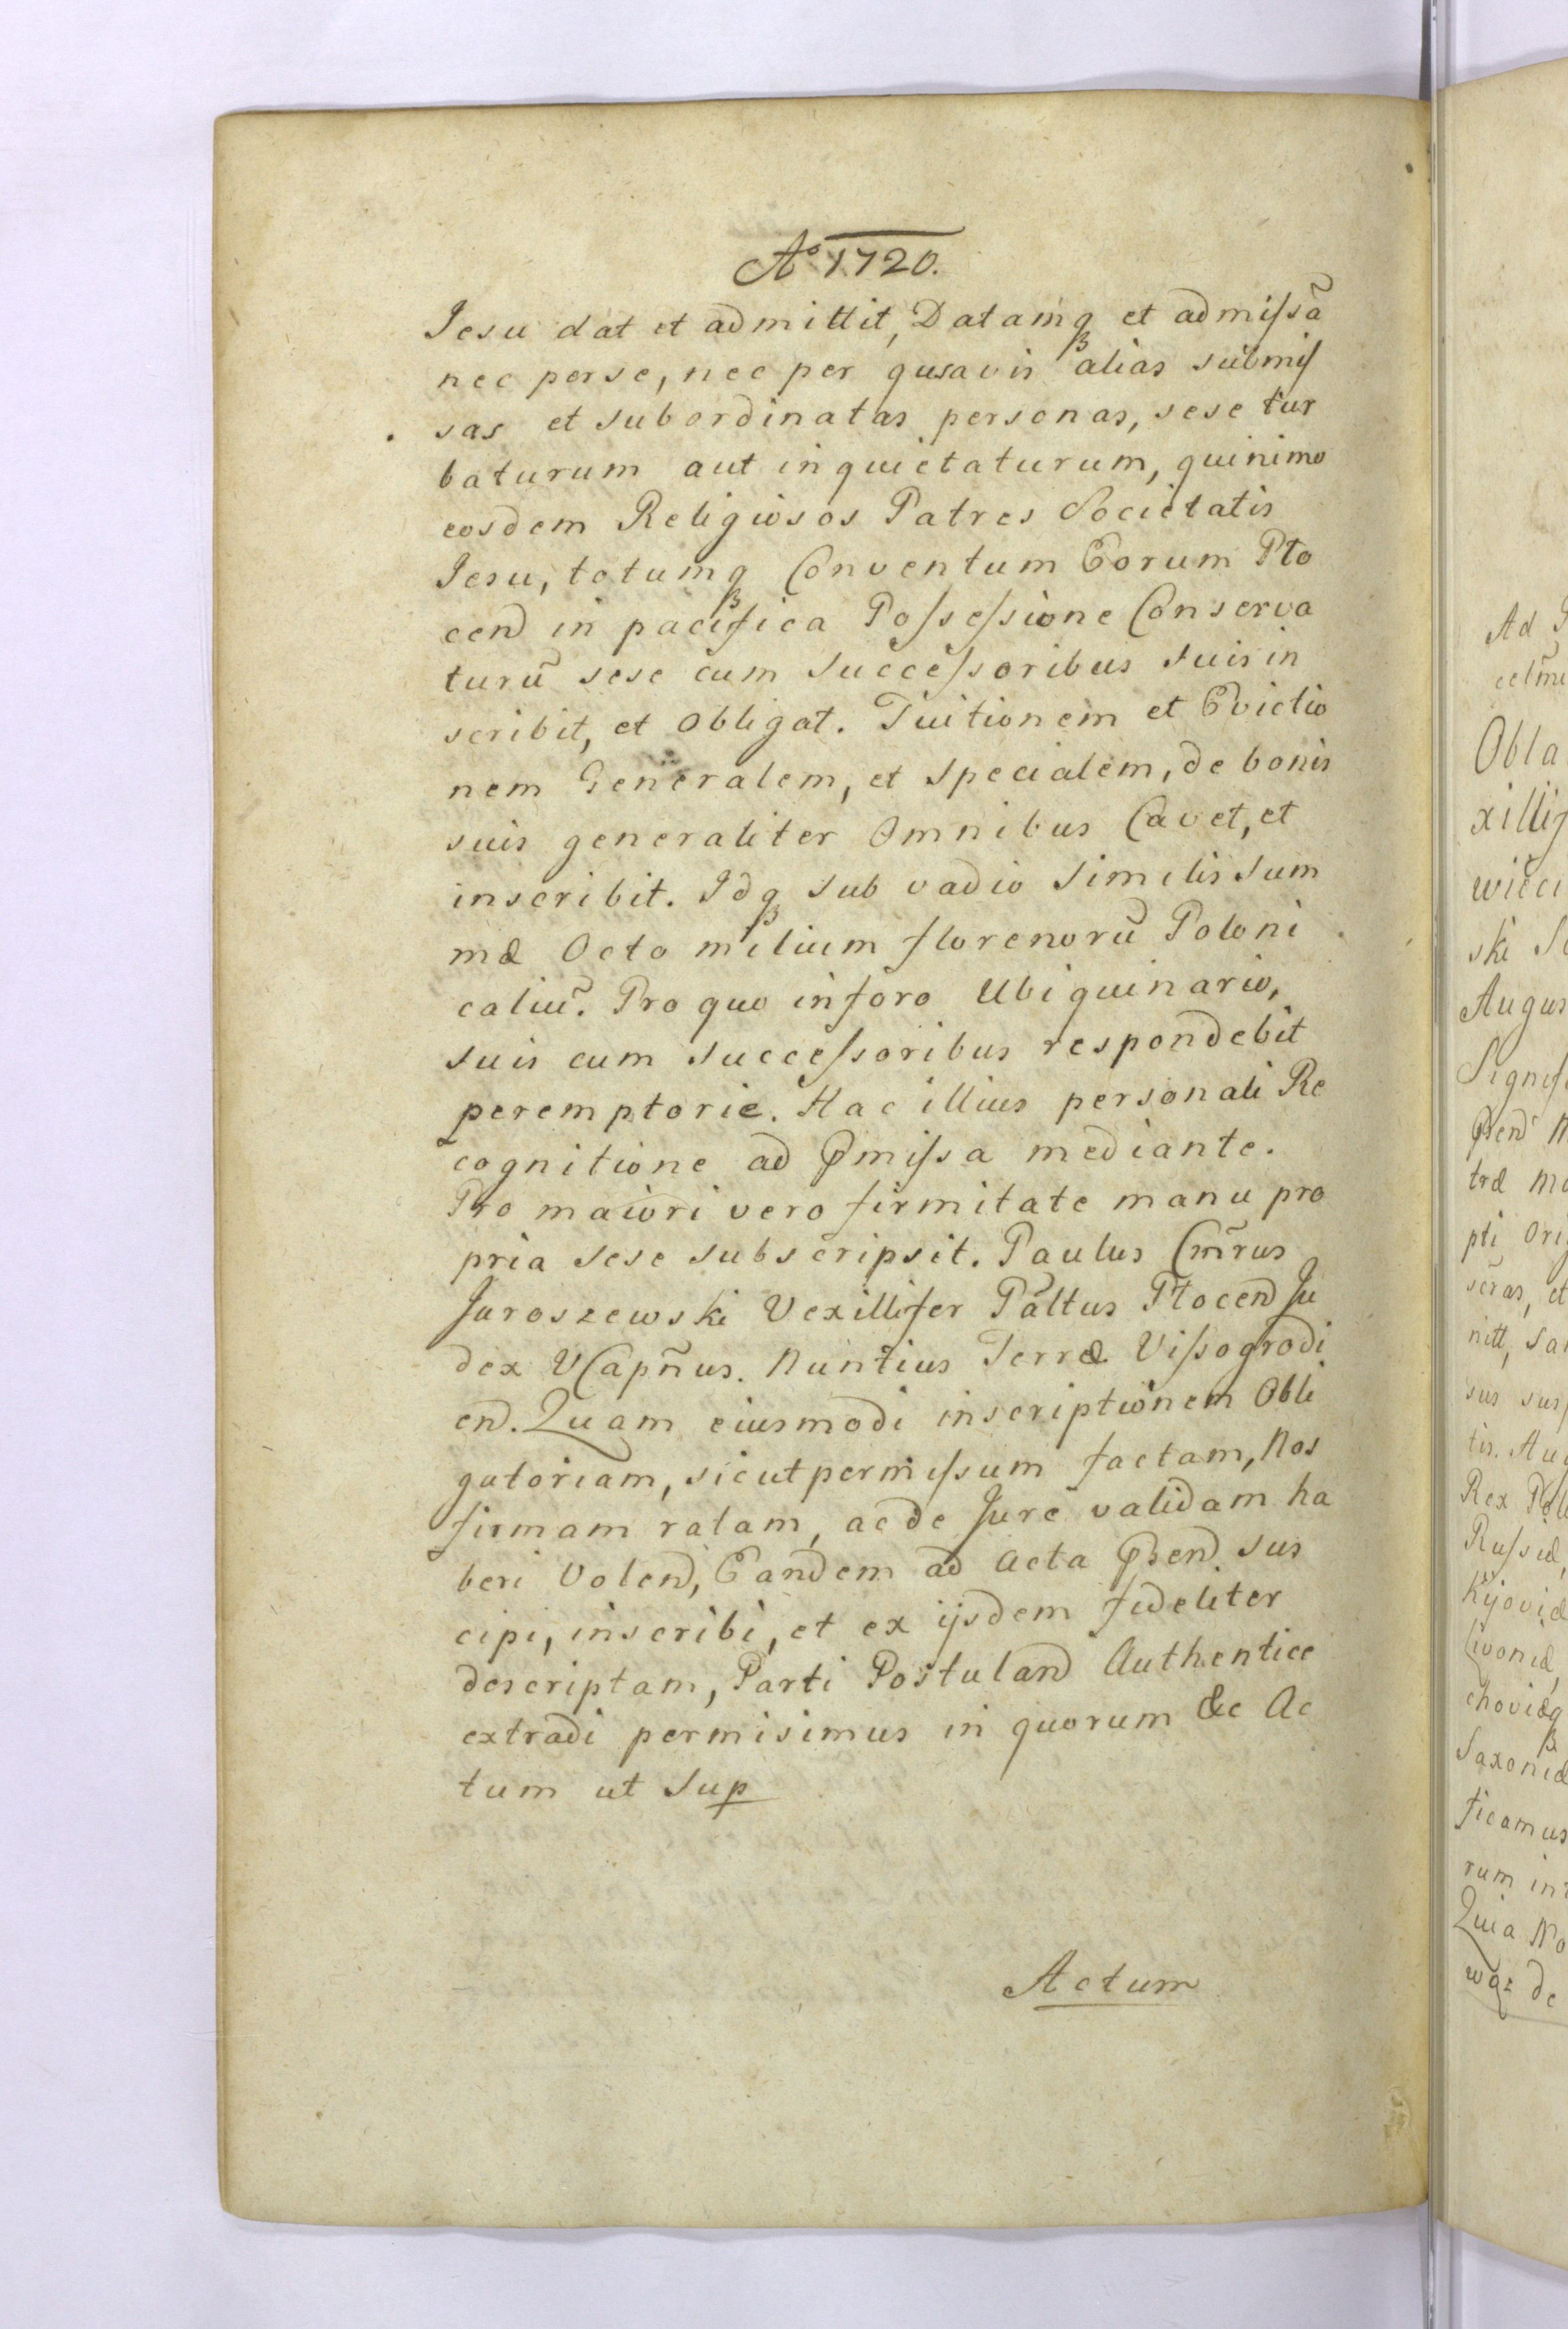 Aº 1720.
Jesu dat et admittit, Datamq₃ et admiſsã
nec per se, nec per qusavis alias submiſ
sas et subordinatas personas, sese tur
baturum aut inquietaturum, quinimo
eosdem Religiosos Patres Societatis
Jesu, totumq₃ Conventum Eorum Pło
cen in pacifica Poſseſsione Conserva
turũ sese cum Succeſsoribus suis in
scribit, et obligat. Tuitionem et Evictio
nem Generalem, et Specialem, de bonis
suis generaliter Omnibus Cavet, et
inscribit. Idq₃ sub vadio similis sum
mæ Octo milium florenorũ Poloni
caliũ. Pro quo in foro Ubiquinario,
suis cum succeſsoribus respondebit
peremptorie. Hac illius personali Re
cognitione ad Pmiſsa mediante.
Pro maiori vero firmitate manu pro
pria sese subscripsit. Paulus Cm̃rus
Jaroszewski Vexillifer Pałtus Płocen Ju
dex VCapñus. Nuntius Terræ Viſsogrodi
en. Quam eiusmodi inscriptionem Obli
gatoriam, sicut permiſsum factam, Nos
firmam ratam, ac de Jure validam ha
beri Volen, Eandem ad Acta Psen sus
cipi, inscribi, et ex ijsdem fideliter
descriptam, Parti Postulan Authentice
extradi permisimus in quorum &c Ac
tum ut Sup
Actum
Ad
Obla
xillif
ski
Augus
Signif
Psen
træ
pti
Rex Pol
Ruſsiæ
Kijoviæ
Livoniæ,
choviæq₃
Saxoniæ
ficamus
rum
Quia No